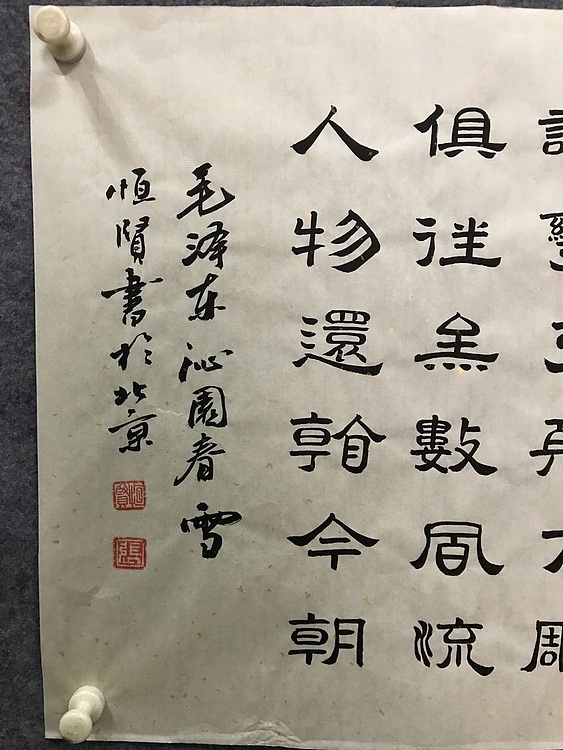 俱往矣數風流
人物還看今朝
毛泽东沁園春雪
恒賢書於北京
恒賢
張